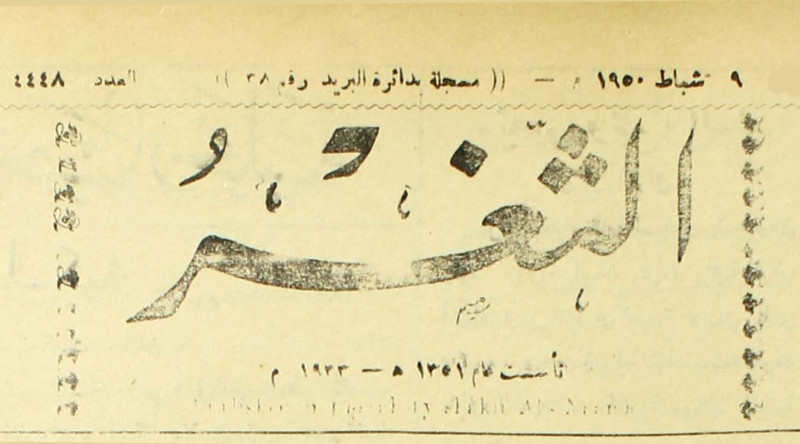 ٩ شباط ١٩٥٠ م — (( مسجلة بدائرة البريد رقم ٣٨ )) العدد ٤٤٤٨
الثغر
تأسست عام ١٣٥١ ه — ١٩٣٣ م